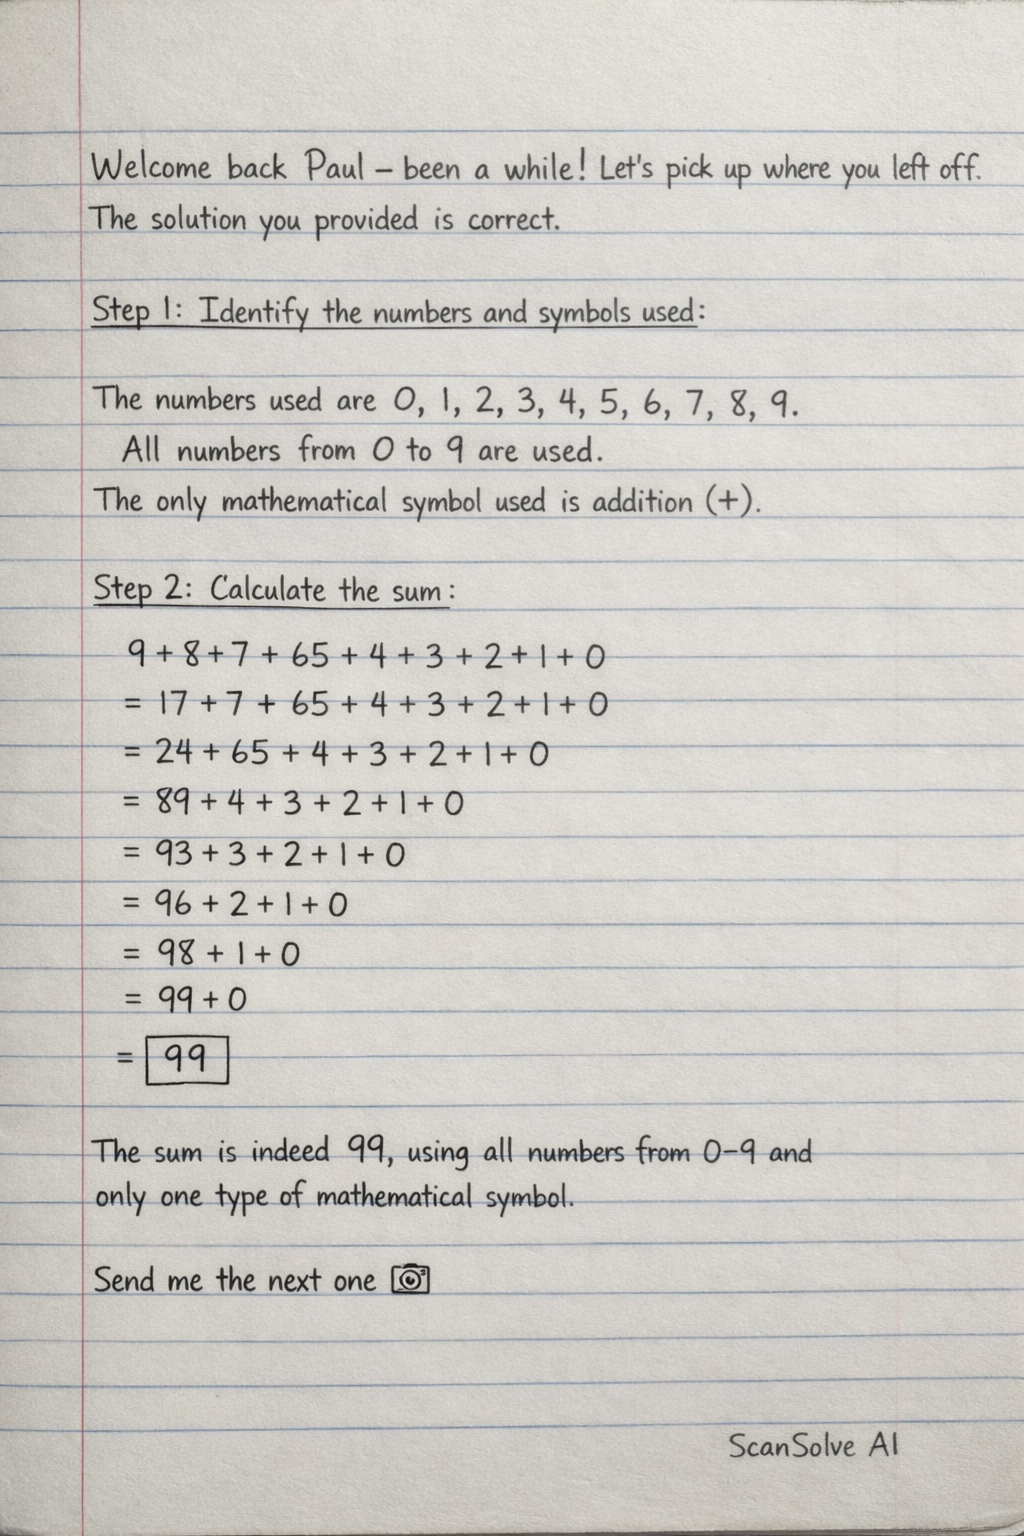 Welcome back Paul – been a while! Let's pick up where you left off.
The solution you provided is correct.
Step 1: Identify the numbers and symbols used:
The numbers used are 0, 1, 2, 3, 4, 5, 6, 7, 8, 9.
All numbers from 0 to 9 are used.
The only mathematical symbol used is addition (+).
Step 2: Calculate the sum:
9 + 8 + 7 + 65 + 4 + 3 + 2 + 1 + 0
= 17 + 7 + 65 + 4 + 3 + 2 + 1 + 0
= 24 + 65 + 4 + 3 + 2 + 1 + 0
= 89 + 4 + 3 + 2 + 1 + 0
= 93 + 3 + 2 + 1 + 0
= 96 + 2 + 1 + 0
= 98 + 1 + 0
= 99 + 0
= 99
The sum is indeed 99, using all numbers from 0–9 and
only one type of mathematical symbol.
Send me the next one 📷
ScanSolve AI